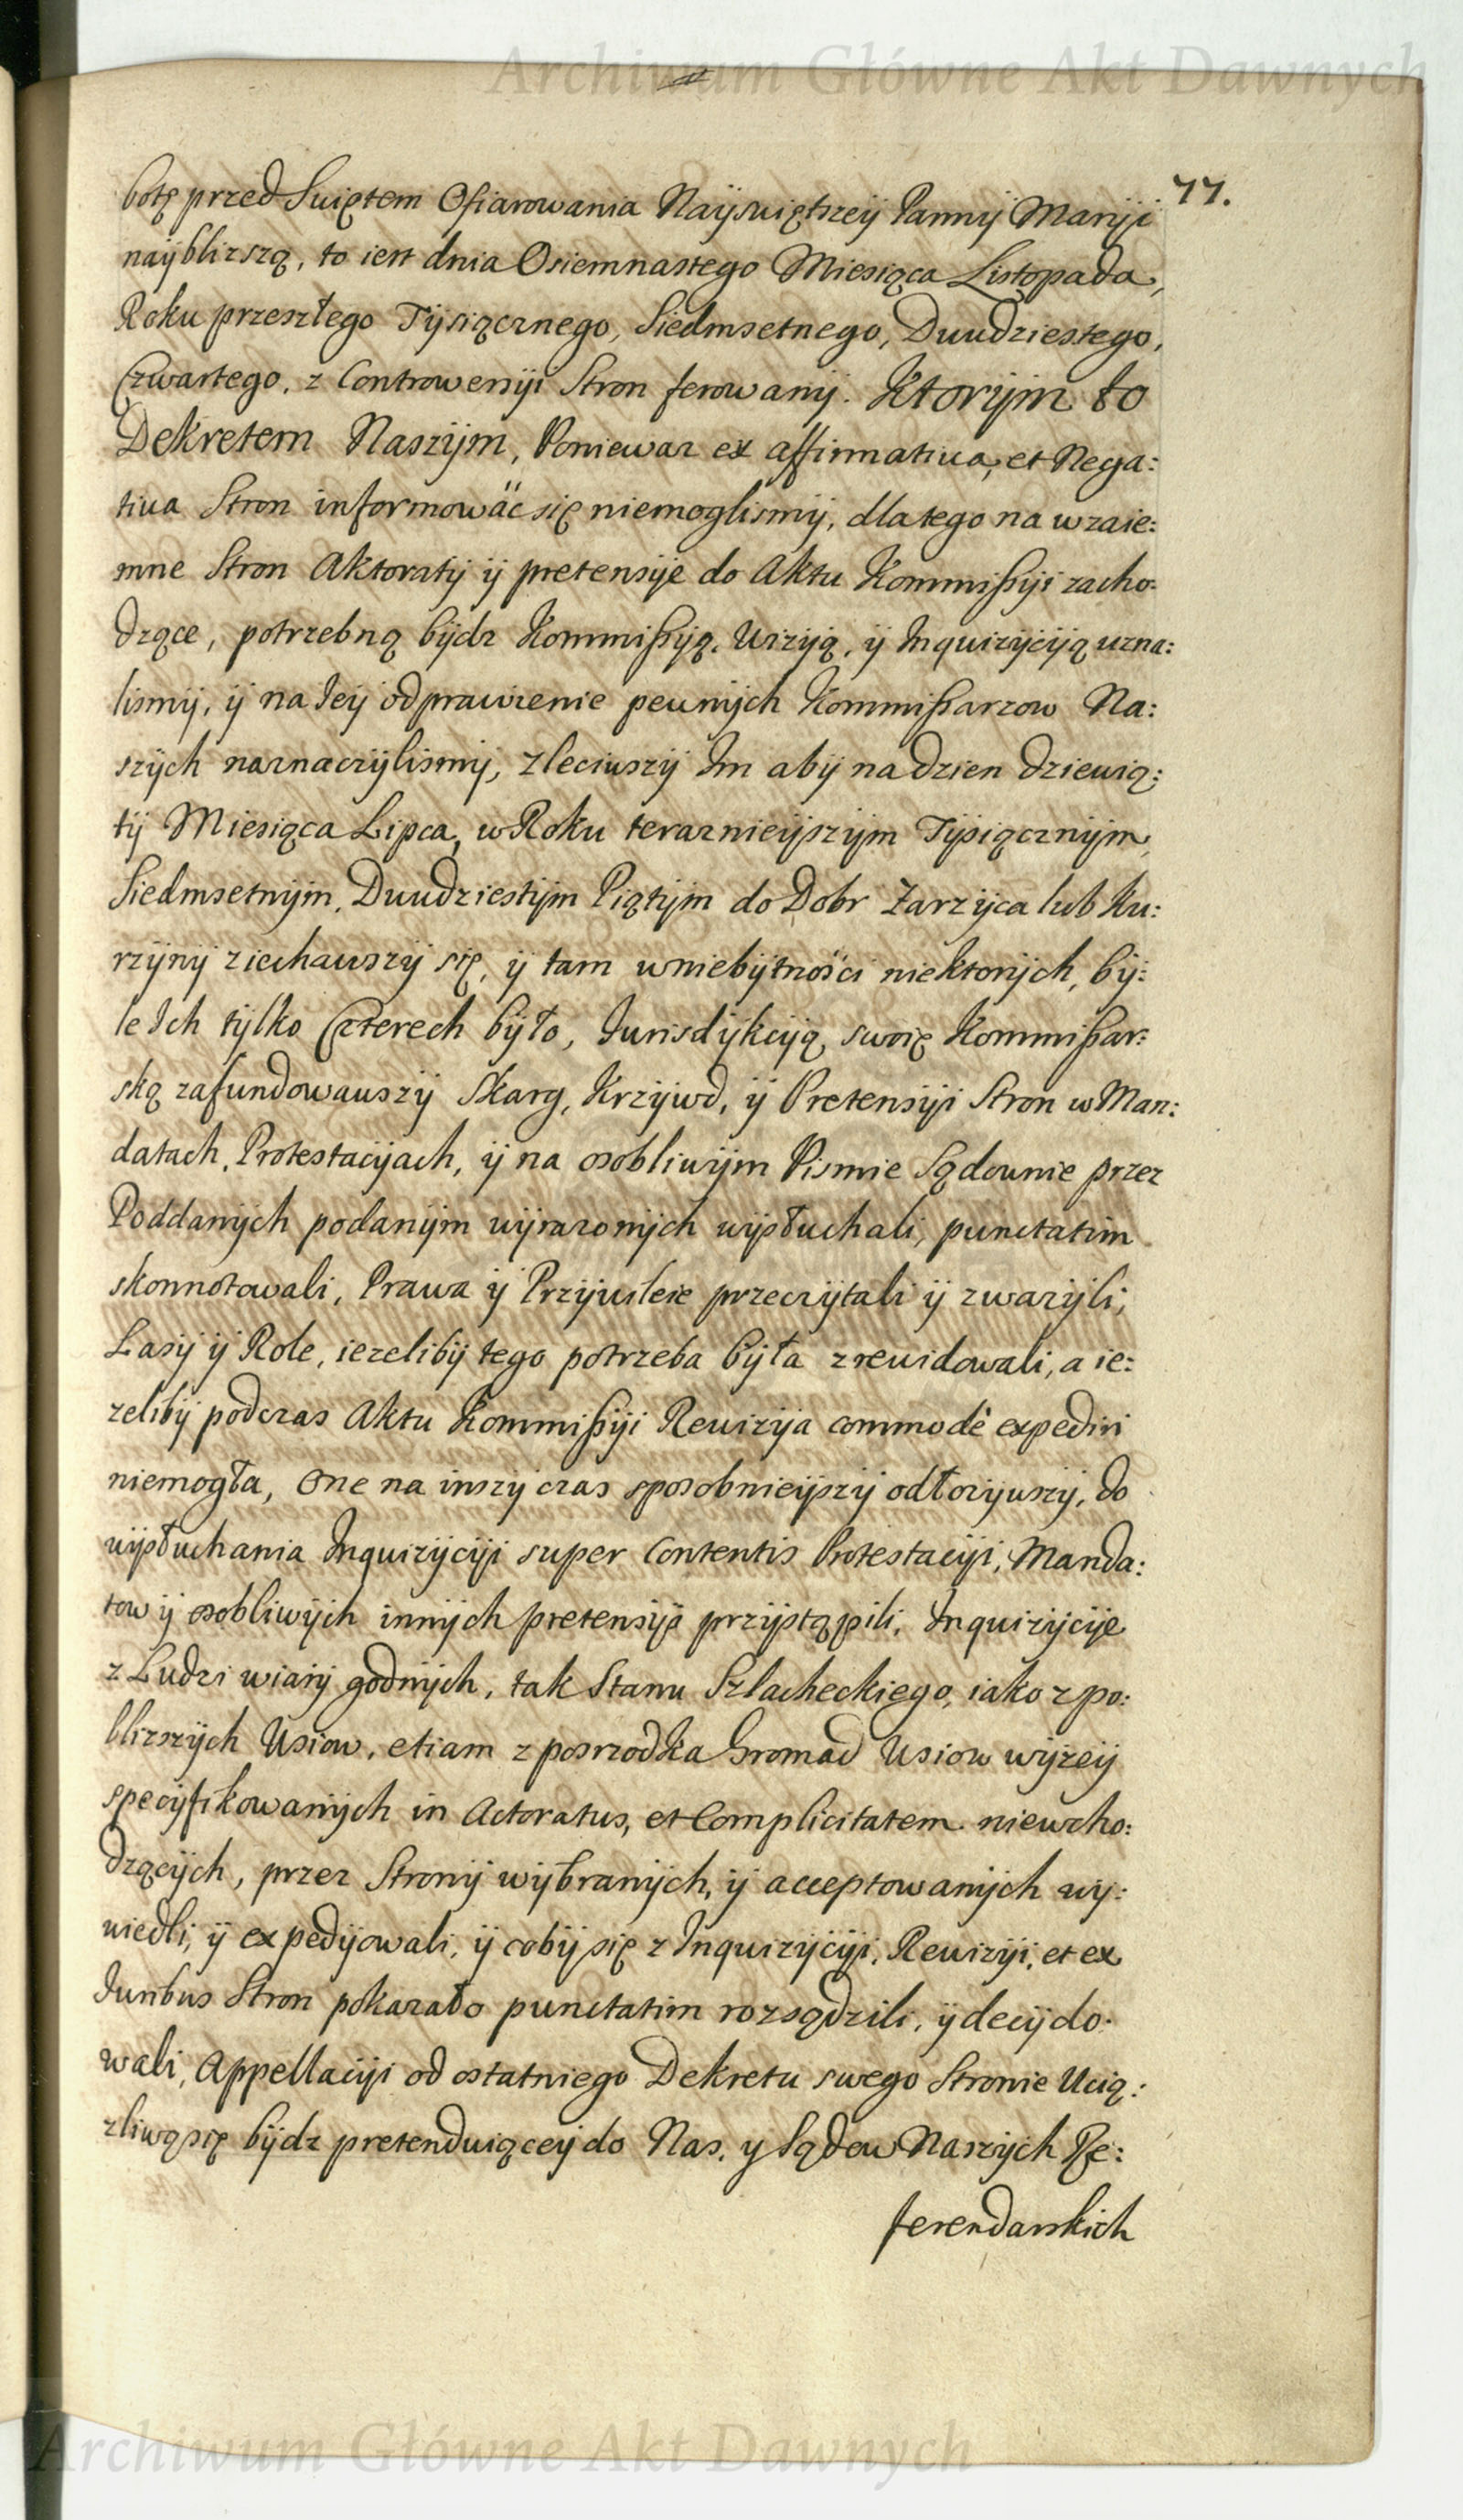 Archiwum Główne Akt Dawnych
77.
botę przed Swiętem Ofiarowania Nayswiętszeÿ Pannÿ Marÿi
naÿblizszą, to iest dnia Osiemnastego Miesiąca Listopada,
Roku przeszłego Tÿsiącznego, Siedmsetnego, Dwudziestego,
Czwartego, z Controwersÿi Stron ferowanÿ. Ktorÿm to
Dekretem Naszÿm, Poniewaz ex affirmativa, et Nega:
tiva Stron informowäc się niemoglismÿ, dlatego na wzaie:
mne Stron Aktoratÿ ÿ pretensÿe do Aktu Kommißÿi zacho-
dzące, potrzebną bÿdz Kommißÿą, Wizÿą, ÿ Inquizÿcÿą uzna:
lismÿ, ÿ na Ieÿ odprawienie pewnÿch Kommißarzow Na:
szÿch naznaczÿlismÿ, zleciwszÿ Im abÿ na dzien dziewią:
tÿ Miesiąca Lipca, w Roku teraznieÿszÿm Tÿsiącznÿm,
Siedmsetnÿm, Dwudziestÿm Piątÿm do Dobr Zarzÿca lub Ku:
rzÿnÿ ziechawszÿ się, ÿ tam w niebÿtnos̈ci niektorÿch, bÿ:
le Ich tÿlko Czterech bÿło, Iurisdÿkcÿą swoię Kommißar:
ską zafundowawszÿ Skarg, Krzÿwd, ÿ Pretensÿi Stron w Man:
datach, Protestacÿach, ÿ na osobliwÿm Pismie Sądownie przez
Poddanÿch podanÿm wÿrazonÿch wÿsłuchali, punctatim
skonnotowali, Prawa ÿ Przÿwileie przeczÿtali ÿ zwazÿli,
Lasÿ ÿ Role, iezelibÿ tego potrzeba bÿła zrewidowali, a ie:
zelibÿ podczas Aktu Kommißÿi Rewizÿa commodè expediri
niemogła, One na inszÿ czas sposobnieÿszÿ odłozÿwszÿ, do
wÿsłuchania Inquizÿcÿi super Contentis Protestacÿi, Manda:
tow ÿ osobliwÿch innÿch pretensÿi przÿstąpili, Inquizÿcÿe
z Ludzi wiarÿ godnÿch, tak Stanu Szlacheckiego, iako z po:
blizszÿch Wsiow, etiam z posrzodka Gromad Wsiow wÿzeÿ
specÿfikowanÿch in Actoratus, et Complicitatem niewcho:
dzącÿch, przez Stronÿ wÿbranÿch, ÿ acceptowanÿch wÿ:
wiedli, ÿ expedÿowali, ÿ cobÿ się z Inquizÿcÿi, Rewizÿi, et ex
Iuribus Stron pokazało punctatim rozsądzili, ÿ decÿdo-
wali, Appellacÿi od ostatniego Dekretu swego Stronie Ucią:
zliwą się bÿdz pretenduiąceÿ do Nas, y Sądow Naszÿch Re:
ferendarskich
Archiwum Główne Akt Dawnych